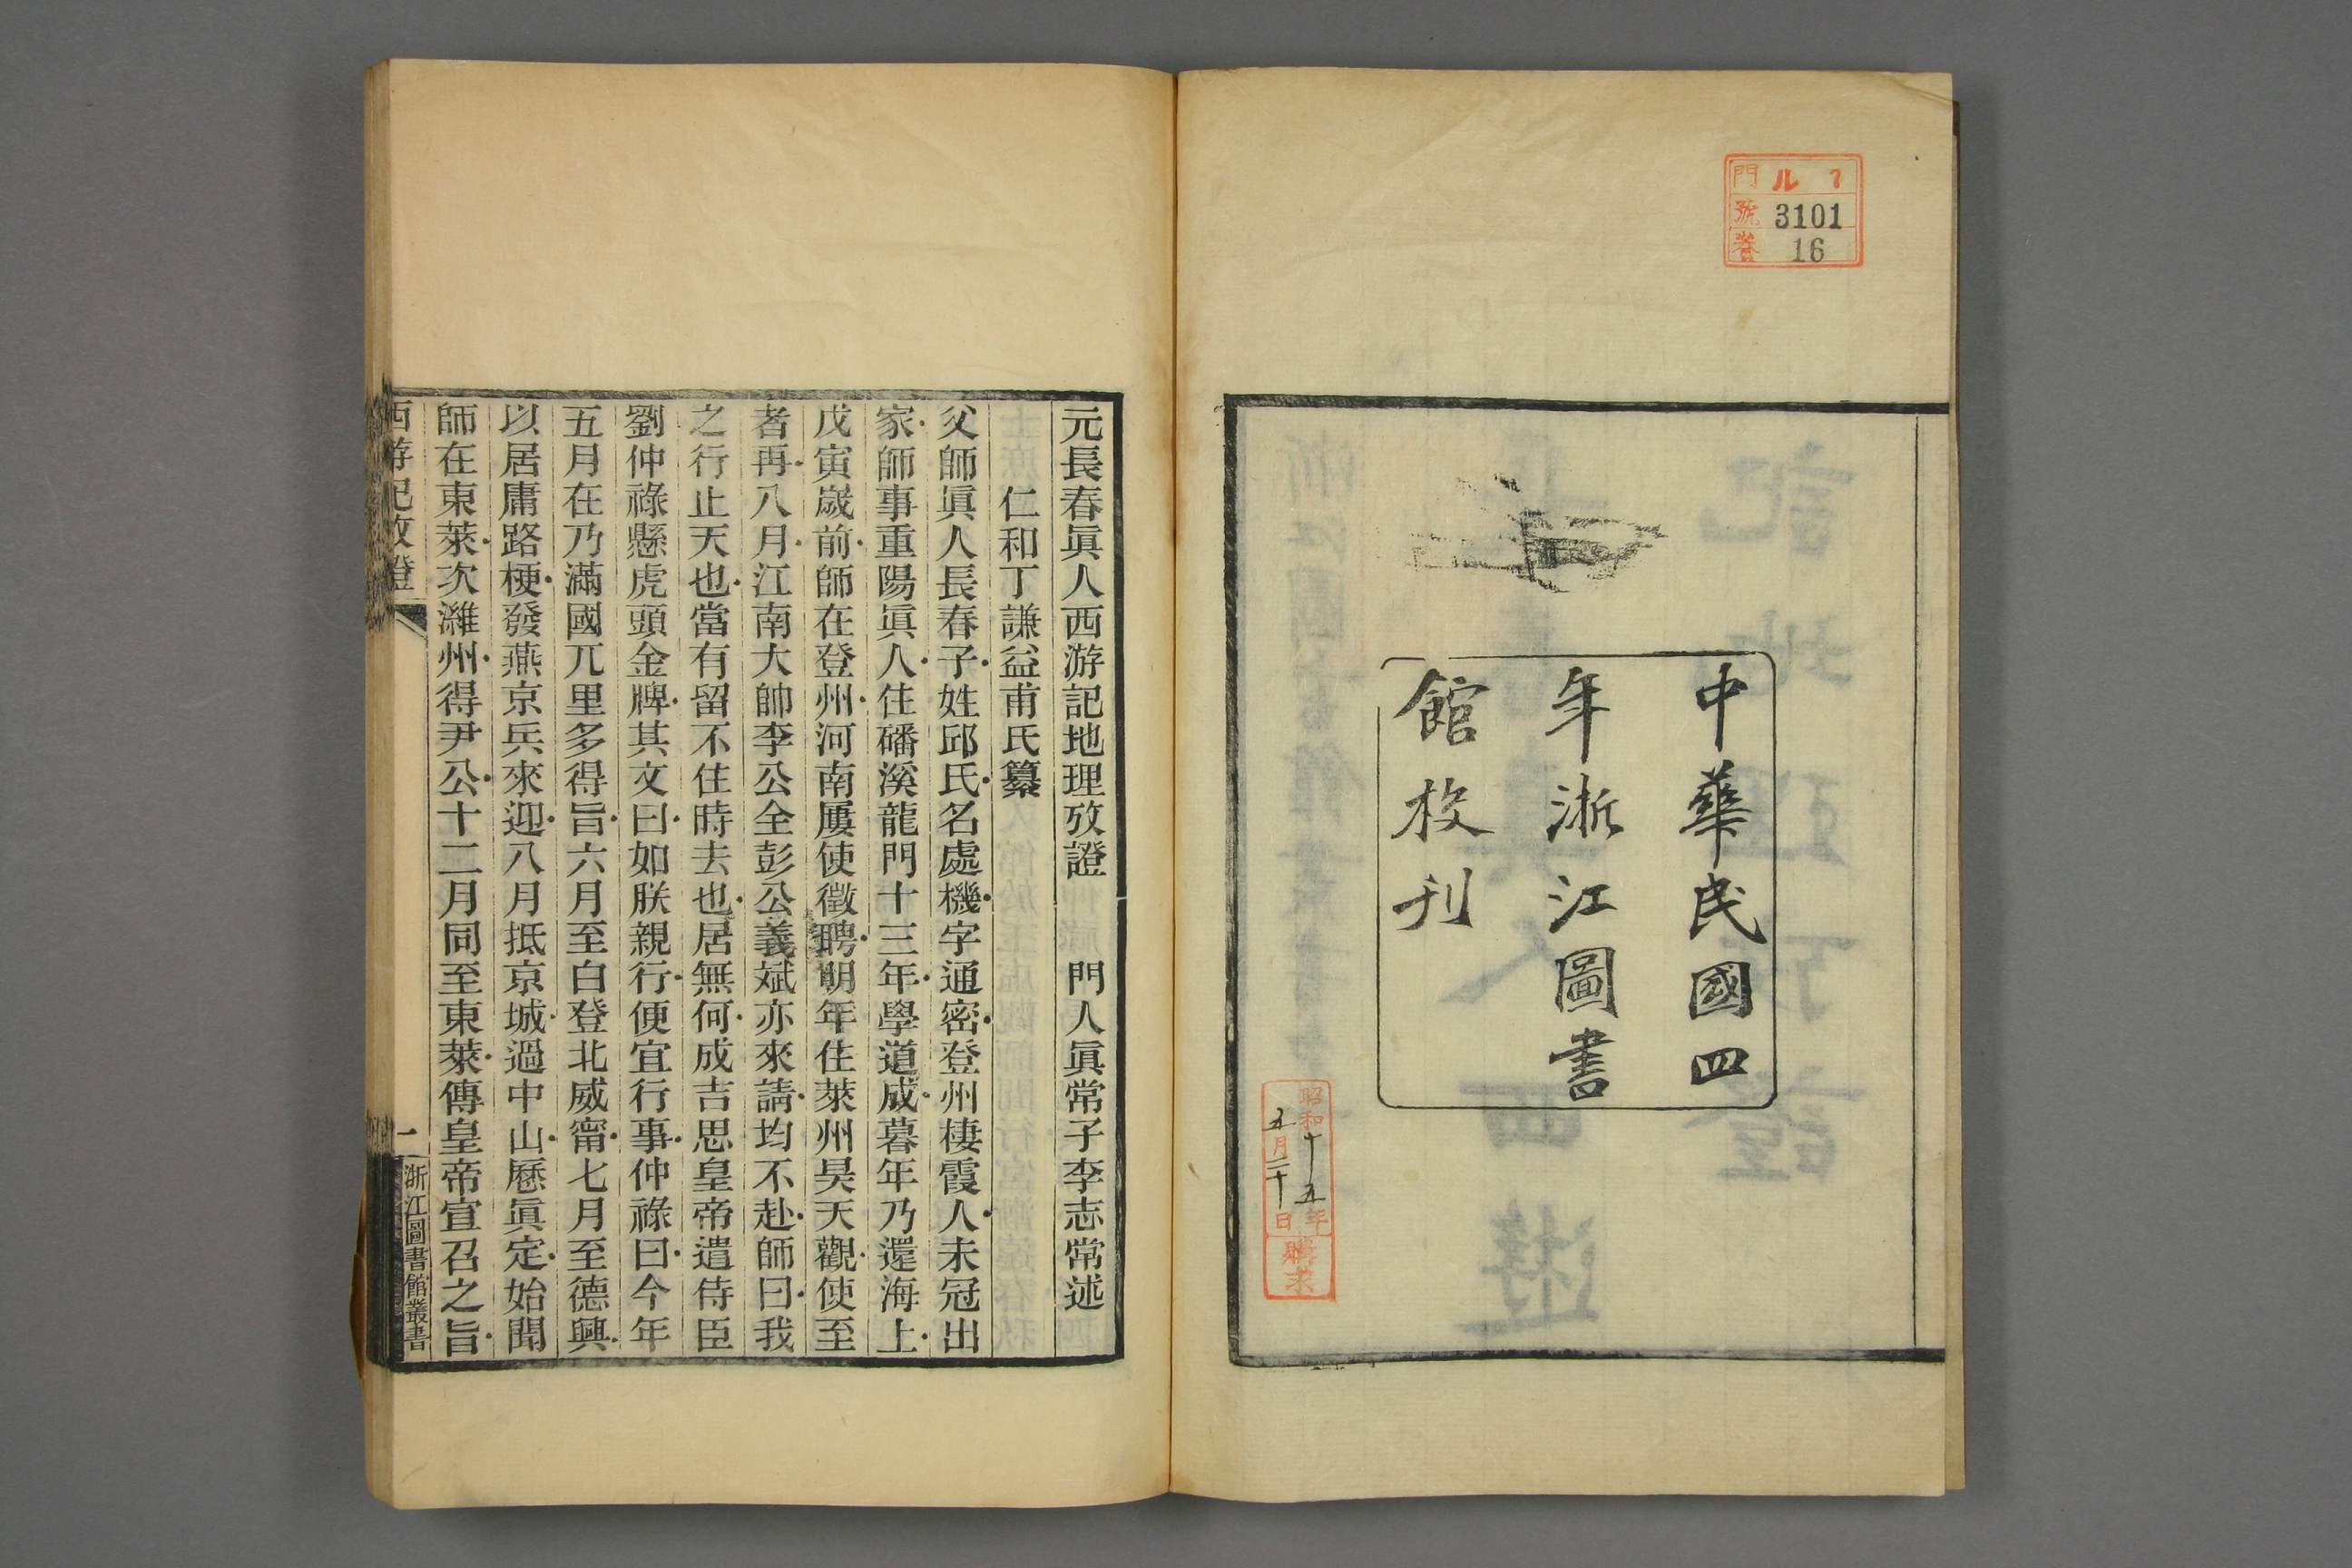 門 ル 7
號 3101
卷 16
中華民國四
年浙江圖書
館校刊
昭和十五年
五月二十日
購求
元長春眞人西游記地理攷證 門人眞常子李志常述
仁和丁謙益甫氏纂
父師眞人長春子姓邱氏名處機字通密登州棲霞人未冠出
家師事重陽眞人住磻溪龍門十三年學道成暮年乃還海上
戊寅歲前師在登州河南屢使徵聘明年住萊州昊天觀使至
者再八月江南大帥李公全彭公義斌亦來請均不赴師曰我
之行止天也當有留不住時去也居無何成吉思皇帝遣侍臣
劉仲祿懸虎頭金牌其文曰如朕親行便宜行事仲祿曰今年
五月在乃滿國兀里多得旨六月至白登北威甯七月至德興
以居庸路梗發燕京兵來迎八月抵京城過中山歷眞定始聞
師在東萊次濰州得尹公十二月同至東萊傳皇帝宣召之旨
西游記攷證 一 浙江圖書館叢書